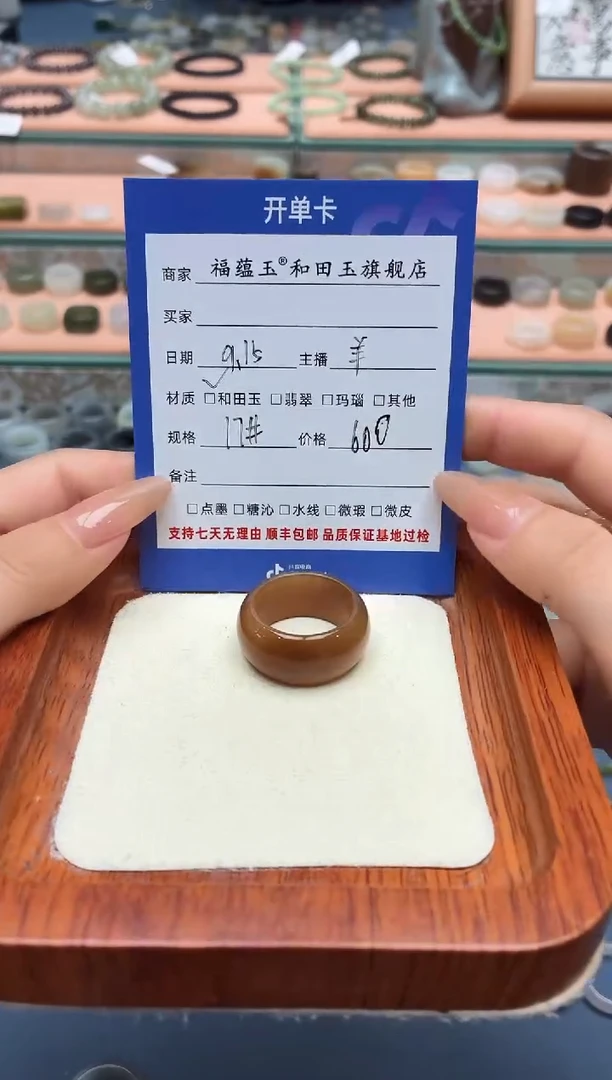 开单卡
商家 福蕴玉®和田玉旗舰店
买家
日期 9.15 主播 羊
材质 ☑和田玉 □翡翠 □玛瑙 □其他
规格 17# 价格 600
备注
□点墨 □糖沁 □水线 □微瑕 □微皮
支持七天无理由 顺丰包邮 品质保证基地过检
抖音电商